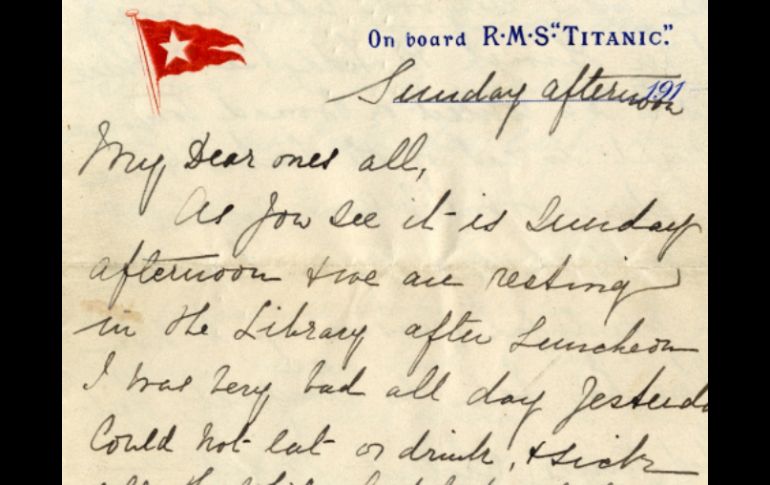 On board R·M·S "TITANIC."
191
Sunday afternoon
My Dear ones all,
As you see it is Sunday
afternoon & we are resting
in the Library after Luncheon
I was very bad all day Yesterda
Could not eat or drink, & sick